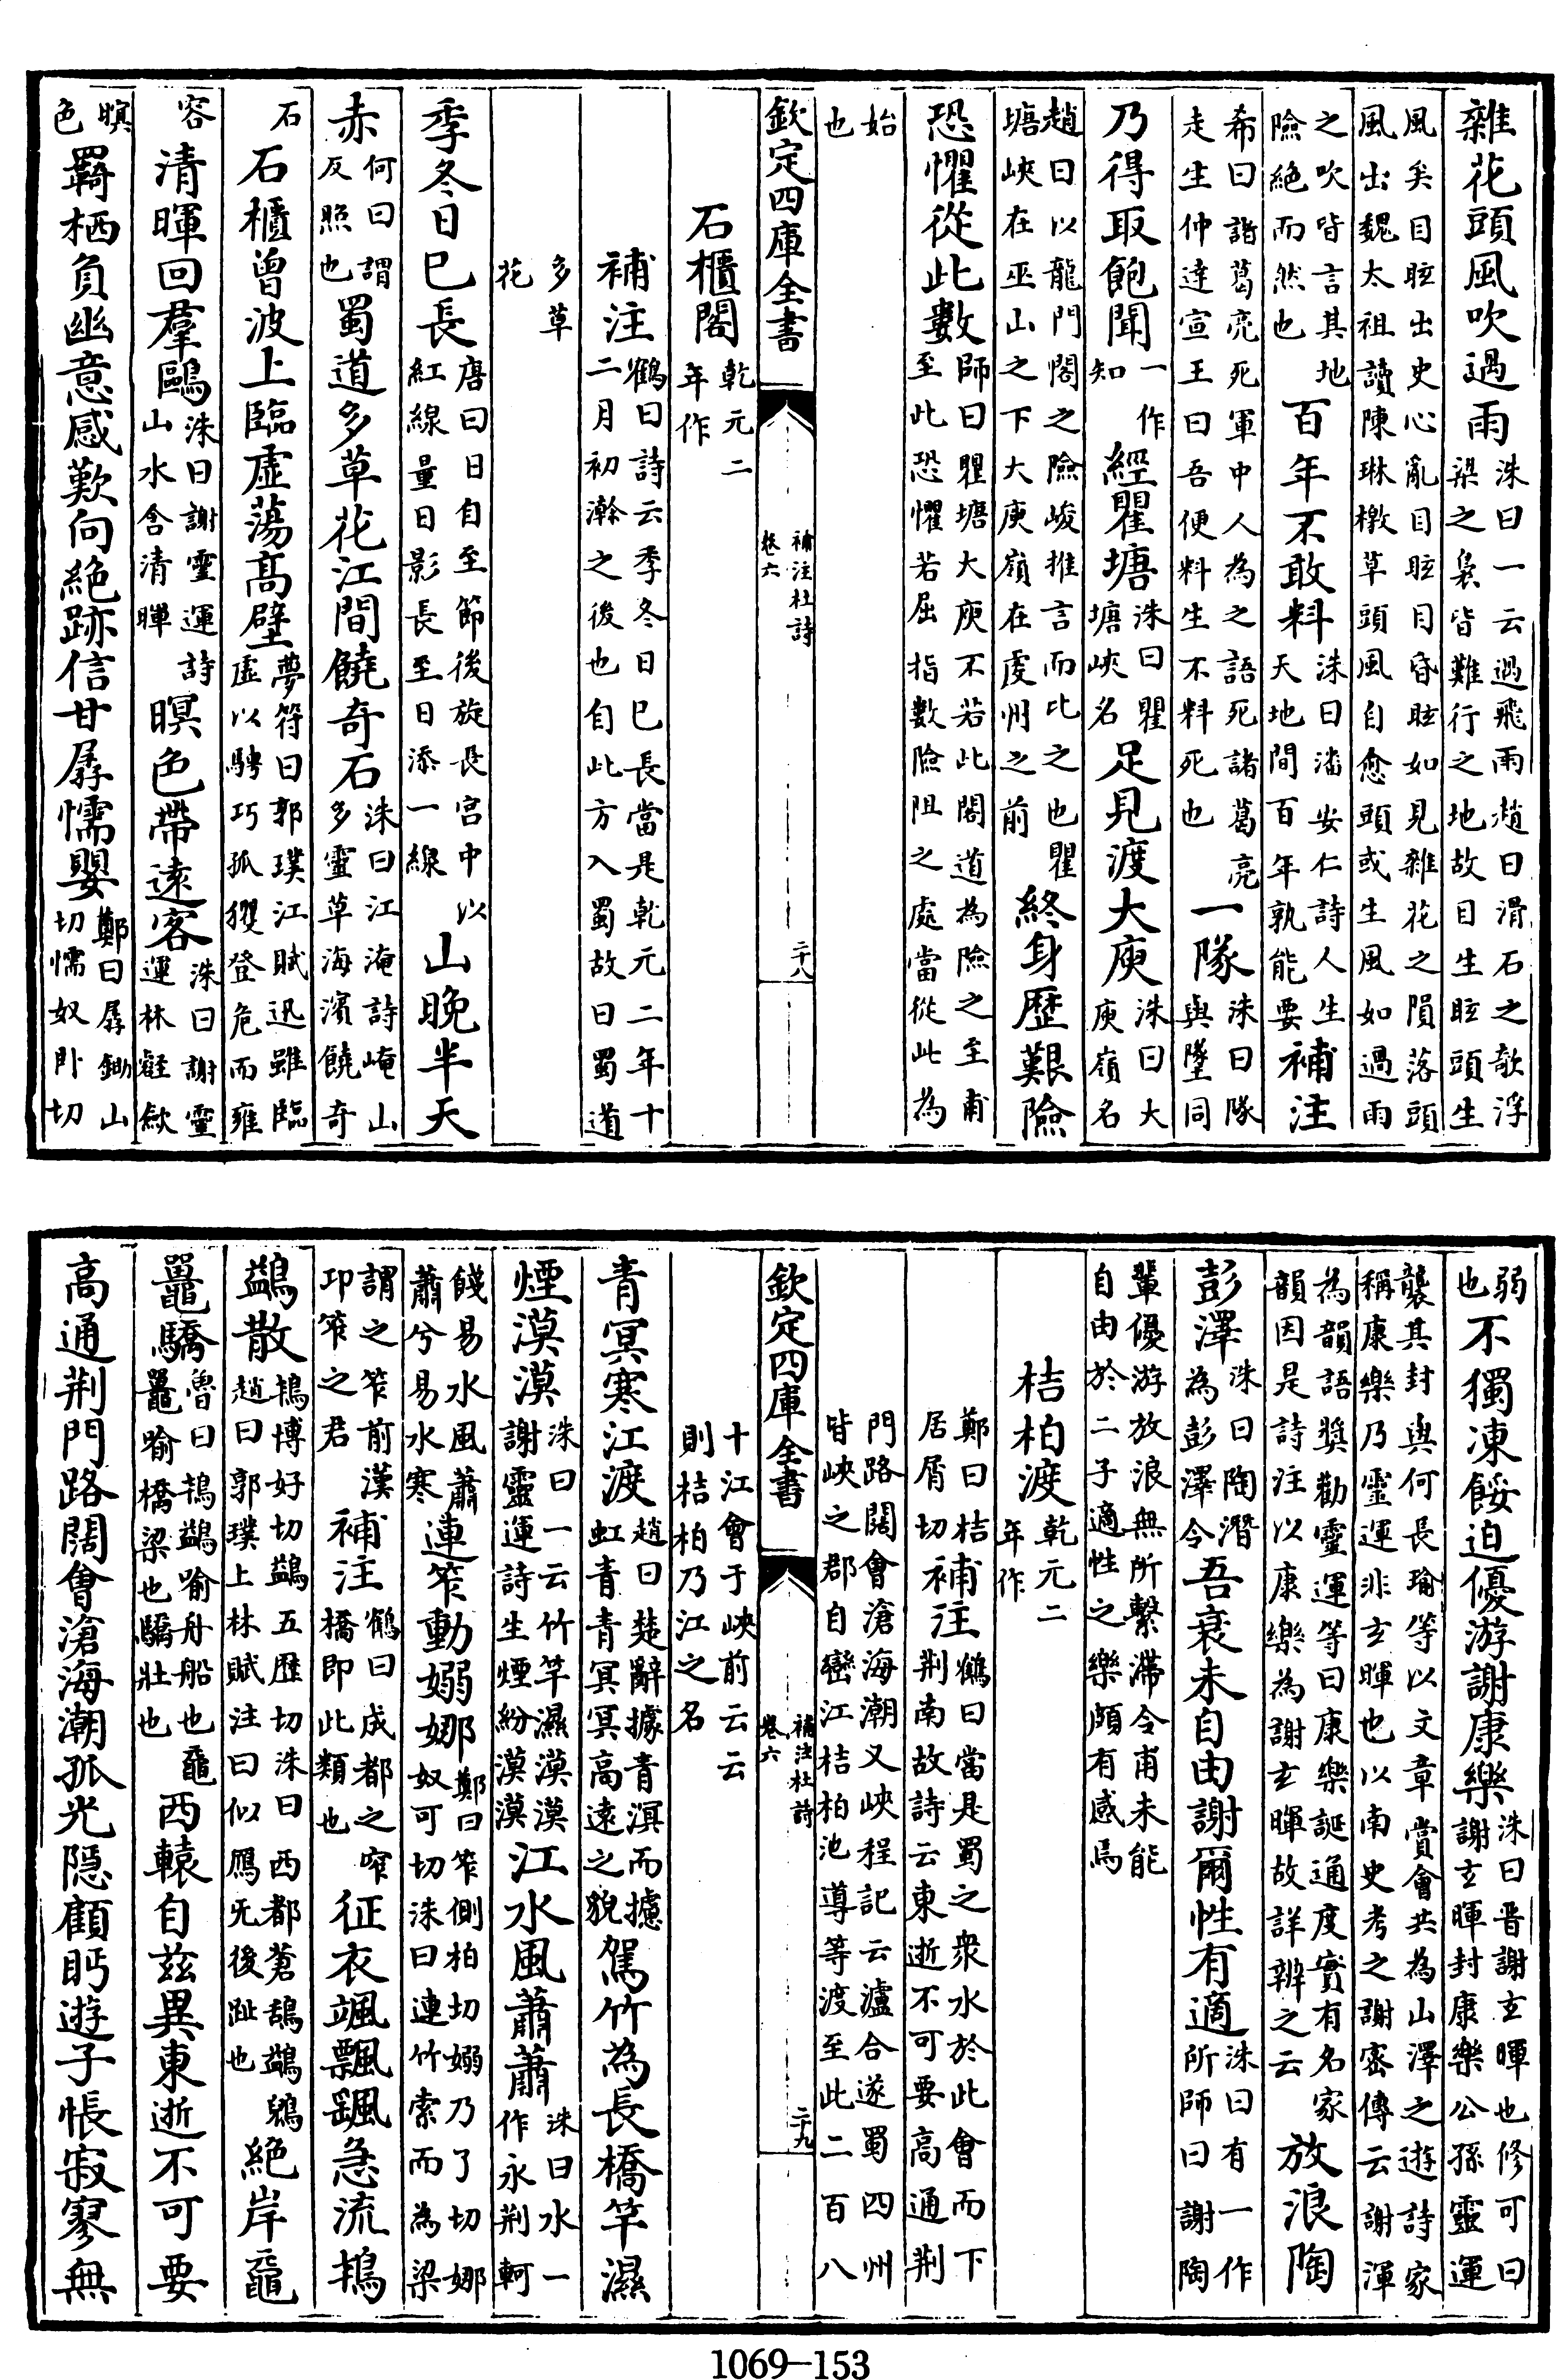 雜花頭風吹過雨洙曰一云過飛雨趙曰滑石之欹浮
梁之裊皆難行之地故目生眩頭生
風矣目眩出史心亂目眩目昏眩如見雜花之隕落頭
風出魏太祖讀陳琳檄草頭風自愈頭或生風如過雨
之吹皆言其地
險絶而然也百年不敢料洙曰潘安仁詩人生
天地間百年孰能要補注
希曰諸葛亮死軍中人為之語死諸葛亮
走生仲達宣王曰吾便料生不料死也一隊洙曰隊
與墜同
乃得取飽聞一作
知經瞿塘洙曰瞿
塘峽名足見渡大庾洙曰大
庾嶺名
趙曰以龍門閣之險峻推言而比之也瞿
塘峽在巫山之下大庾嶺在虔州之前終身歷艱險
恐懼從此數師曰瞿塘大庾不若此閣道為險之至甫
至此恐懼若屈指數險阻之處當從此為
始
也
欽定四庫全書
補注杜詩
卷六
二十八
石櫃閣乾元二
年作
補注鶴曰詩云季冬日已長當是乾元二年十
二月初瀚之後也自此方入蜀故曰蜀道
多草
花
季冬日已長唐曰日自至節後旋長宮中以
紅線量日影長至日添一線山晚半天
赤何曰謂
反照也蜀道多草花江間饒奇石洙曰江淹詩崦山
多靈草海濱饒奇
石
石櫃曾波上臨虛蕩高壁夢符曰郭璞江賦迅雖臨
虛以騁巧孤玃登危而雍
容
清暉回羣鷗洙曰謝靈運詩
山水含清暉暝色帶遠客洙曰謝靈
運林壑歛
暝
色羇栖負幽意感歎向絶跡信甘孱懦嬰鄭曰孱鋤山
切懦奴卧切
弱
也不獨凍餒迫優游謝康樂洙曰晋謝玄暉也修可曰
謝玄暉封康樂公孫靈運
襲其封與何長瑜等以文章賞會共為山澤之遊詩家
稱康樂乃靈運非玄暉也以南史考之謝密傳云謝渾
為韻語獎勸靈運等曰康樂誕通度實有名家
韻因是詩注以康樂為謝玄暉故詳辨之云放浪陶
彭澤洙曰陶潛
為彭澤令吾衰未自由謝爾性有適洙曰有一作
所師曰謝陶
輩優游放浪無所繫滯令甫未能
自由於二子適性之樂頗有感焉
桔柏渡乾元二
年作
鄭曰桔
居屑切補注鶴曰當是蜀之衆水於此會而下
荆南故詩云東逝不可要高通荆
門路闊會滄海潮又峽程記云瀘合遂蜀四州
皆峽之郡自巒江桔柏池導等渡至此二百八
欽定四庫全書
補注杜詩
卷六
二十九
十江會于峽前云云
則桔柏乃江之名
青冥寒江渡趙曰楚辭據青溟而攄
虹青青冥冥高遠之貌駕竹為長橋竿濕
煙漠漠洙曰一云竹竿濕漠漠
謝靈運詩生煙紛漠漠江水風蕭蕭洙曰水一
作永荆軻
餞易水風蕭
蕭兮易水寒連笮動嫋娜鄭曰笮側柏切嫋乃了切娜
奴可切洙曰連竹索而為梁
謂之笮前漢
卭笮之君補注鶴曰成都之窄
橋即此類也征衣颯飄颻急流鴇
鷁散鴇博好切鷁五歴切洙曰西都蒼鴰鷁鶂
趙曰郭璞上林賦注曰似鴈旡後趾也絶岸黿
鼉驕魯曰鴇鷁喻舟船也黿
鼉喻橋梁也驕壯也西轅自兹異東逝不可要
高通荆門路闊會滄海潮孤光隠顧眄遊子悵寂寥無
1069-153